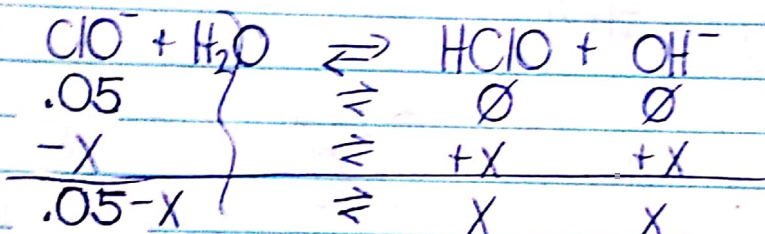 ClO⁻ + H₂O ⇌ HClO + OH⁻
.05 ⇌ Ø Ø
-X ⇌ +X +X
.05-X ⇌ X X